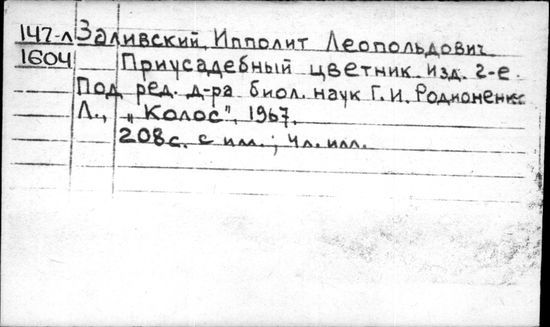 147-л Заливский, Ипполит Леопольдович
1604 Приусадебный цветник. Изд. 2-е.
Под ред. д-ра биол. наук Г. И. Родионенко
Л., „Колос", 1967.
208 с. с илл.; 4 л. илл.